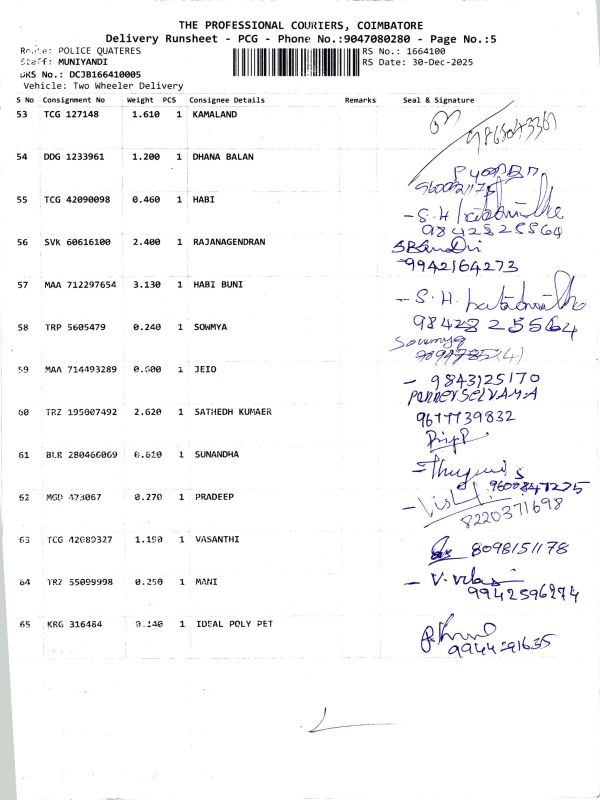 THE PROFESSIONAL COURIERS, COIMBATORE
Delivery Runsheet - PCG - Phone No.:9047080280 - Page No.:5
Route: POLICE QUATERES RS No.: 1664100
Staff: MUNIYANDI RS Date: 30-Dec-2025
DRS No.: DCJB166410005
Vehicle: Two Wheeler Delivery
S No Consignment No Weight PCS Consignee Details Remarks Seal & Signature
53 TCG 127148 1.610 1 KAMALAND
54 DDG 1233961 1.200 1 DHANA BALAN
55 TCG 42090098 0.460 1 HABI
- S. H
9842825564
56 SVK 60616100 2.400 1 RAJANAGENDRAN
9942164273
57 MAA 712297654 3.130 1 HABI BUNI
- S. H.
98428 25564
58 TRP 5605479 0.240 1 SOWMYA
Sowmya
59 MAA 714493289 0.600 1 JEIO
- 9843125170
60 TRZ 195007492 2.620 1 SATHEDH KUMAER
9677739832
61 BLR 280466069 0.610 1 SUNANDHA
9600847275
62 MGD 473067 0.270 1 PRADEEP
8220371698
63 TCG 42089327 1.190 1 VASANTHI
8098151178
64 TRZ 55099998 0.250 1 MANI
9942596274
65 KRG 316484 0.140 1 IDEAL POLY PET
9944291635